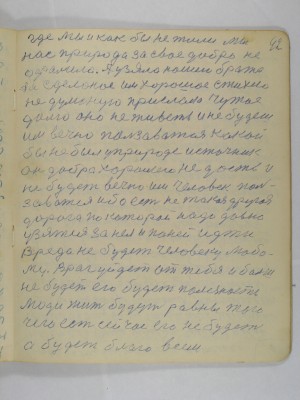 42
где мы и как бы не жили мы
нас природа за свое добро не
за сделоное им хорошое стихию
не думоную прислала Чужое
долго оно не живеть и не будеш
им вечно ползаватся какой
бы не был у природе источник
он добра хорошего не дость и
не будеть вечно им Человек пол-
зоватся ибо есть не такая другая
дорога по которой надо давно
взятся за нея и по ней идти
Вреда не будет человеку любо-
му. Враг уйдеть от тебя и больш
не будет его будет полезность
люди жит будут равны того
чего есть сейчас его не будеть
а будет благо всем